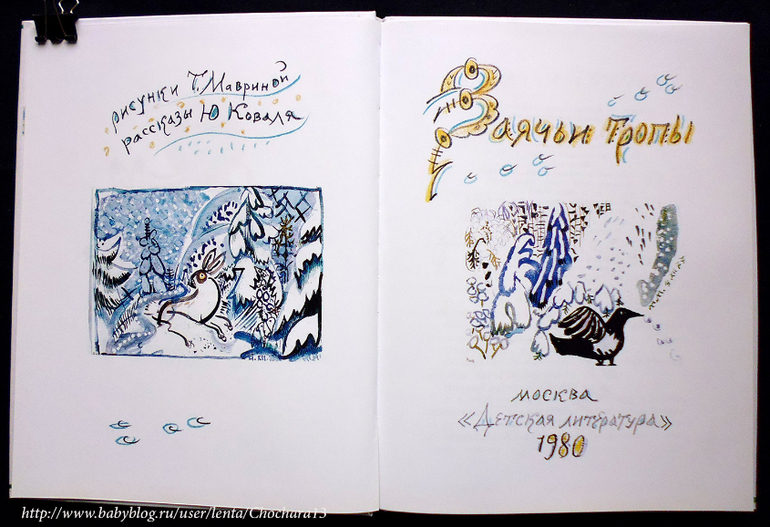 рисунки Т. Мавриной
рассказы Ю Коваля
Заячьи тропы
москва
«Детская литература»
1980
http://www.babyblog.ru/user/lenta/Chochara13